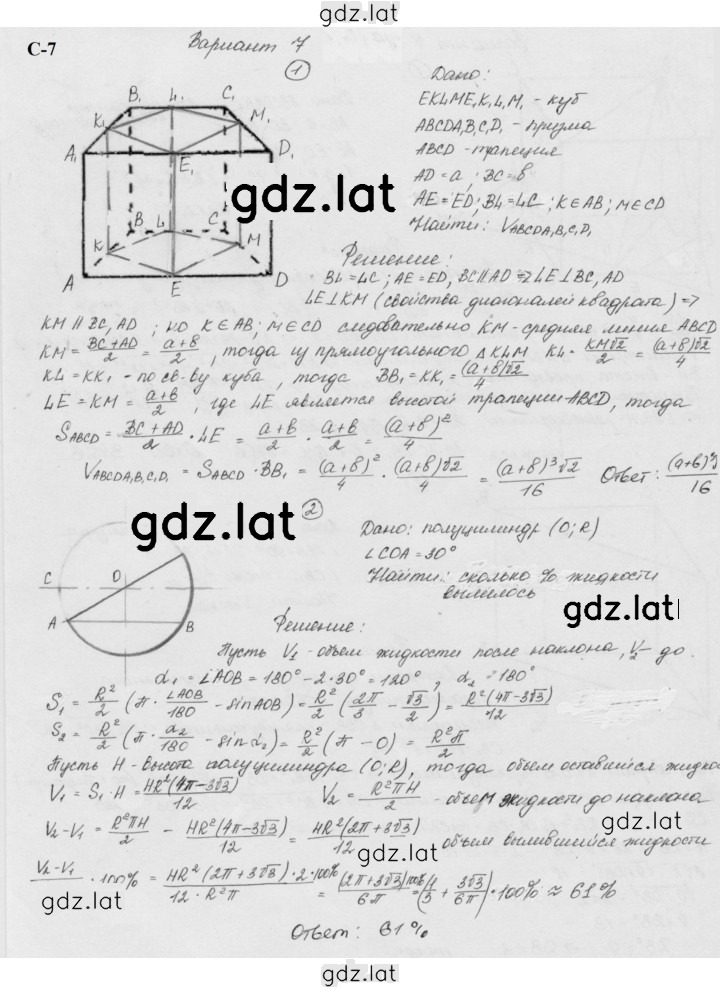 gdz.lat
С-7
Вариант 7
1
B₁ L₁ C₁
K₁ M₁
A₁ E₁ D₁
B L C
K M
A E D
Дано:
EKLME₁K₁L₁M₁ - куб
ABCDA₁B₁C₁D₁ - призма
ABCD - трапеция
AD = a; BC = в
AE = ED; BL = LC; K∈AB; M∈CD
Найти: V_ABCDA₁B₁C₁D₁
gdz.lat
Решение:
BL = LC; AE = ED, BC∥AD ⇒ LE⊥BC, AD
LE⊥KM (свойства диагоналей квадрата) ⇒
KM ∥ BC, AD; но K∈AB; M∈CD следовательно KM - средняя линия ABCD
KM = (BC+AD)/2 = (a+в)/2, тогда из прямоугольного △KLM KL = KM√2/2 = (a+в)√2/4
KL = KK₁ - по св-ву куба, тогда BB₁ = KK₁ = (a+в)√2/4
LE = KM = (a+в)/2, где LE является высотой трапеции ABCD, тогда
S_ABCD = (BC+AD)/2 · LE = (a+в)/2 · (a+в)/2 = (a+в)²/4
V_ABCDA₁B₁C₁D₁ = S_ABCD · BB₁ = (a+в)²/4 · (a+в)√2/4 = (a+в)³√2/16 Ответ: (a+в)³/16
gdz.lat
2
C O
A B
Дано: полуцилиндр (O; R)
∠COA = 30°
Найти: сколько % жидкости
вылилось
gdz.lat
Решение:
Пусть V₁ - объем жидкости после наклона, V₂ - до.
α₁ = ∠AOB = 180° - 2·30° = 120°, α₂ = 180°
S₁ = R²/2 (π · ∠AOB/180 - sinAOB) = R²/2 (2π/3 - √3/2) = R²(4π-3√3)/12
S₂ = R²/2 (π · α₂/180 - sinα₂) = R²/2 (π - 0) = R²π/2
Пусть H - высота полуцилиндра (O; R), тогда объем оставшейся жидкос
V₁ = S₁ · H = HR²(4π-3√3)/12 V₂ = R²πH/2 - объем жидкости до наклона
gdz.lat
V₂-V₁ = R²πH/2 - HR²(4π-3√3)/12 = HR²(2π+3√3)/12 объем вылившейся жидкости
gdz.lat
(V₂-V₁)/ · 100% = HR²(2π+3√3)·2·100%/12·R²π = (2π+3√3)100%/6π = (1/3 + 3√3/6π) · 100% ≈ 61%
Ответ: 61%
gdz.lat